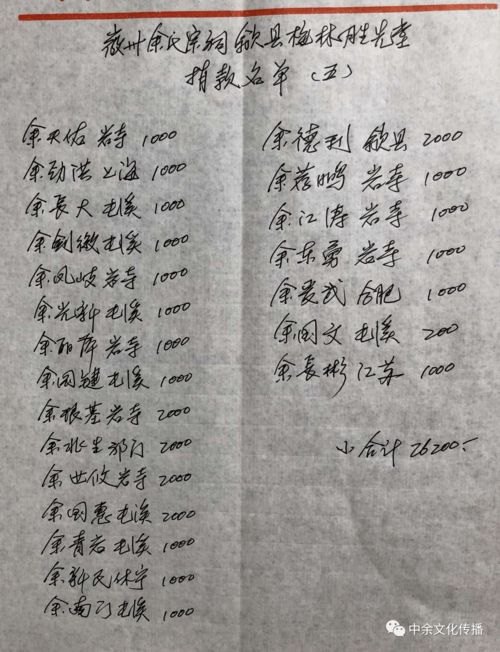 徽州余氏宗祠歙县梅林胜先堂
捐款名单（五）
余天佑 岩寺 1000
余劲洪 上海 1000
余長大 屯溪 1000
余剑徽 屯溪 1000
余凤岐 岩寺 1000
余光新 屯溪 1000
余丽萍 岩寺 1000
余国建 屯溪 1000
余根基 岩寺 2000
余兆生 祁门 2000
余世攸 岩寺 2000
余国惠 屯溪 2000
余青岩 屯溪 1000
余新民 休宁 1000
余南 屯溪 1000
余德利 歙县 2000
余鹏 岩寺 1000
余江涛 岩寺 1000
余东勇 岩寺 1000
余爱武 合肥 1000
余国文 屯溪 200
余長彬 江苏 1000
小合计 26200.-
中余文化传播